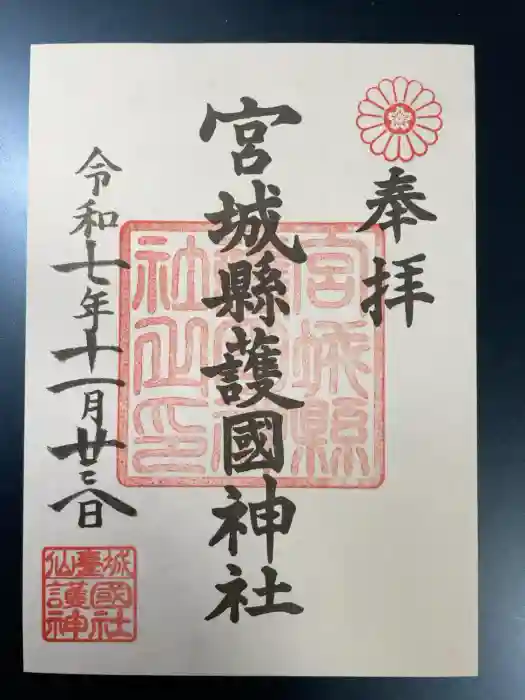 奉拝
宮城縣護國神社
宮城縣
護國神
社之印
令和七年十一月廿三日
仙臺城
護國
神社